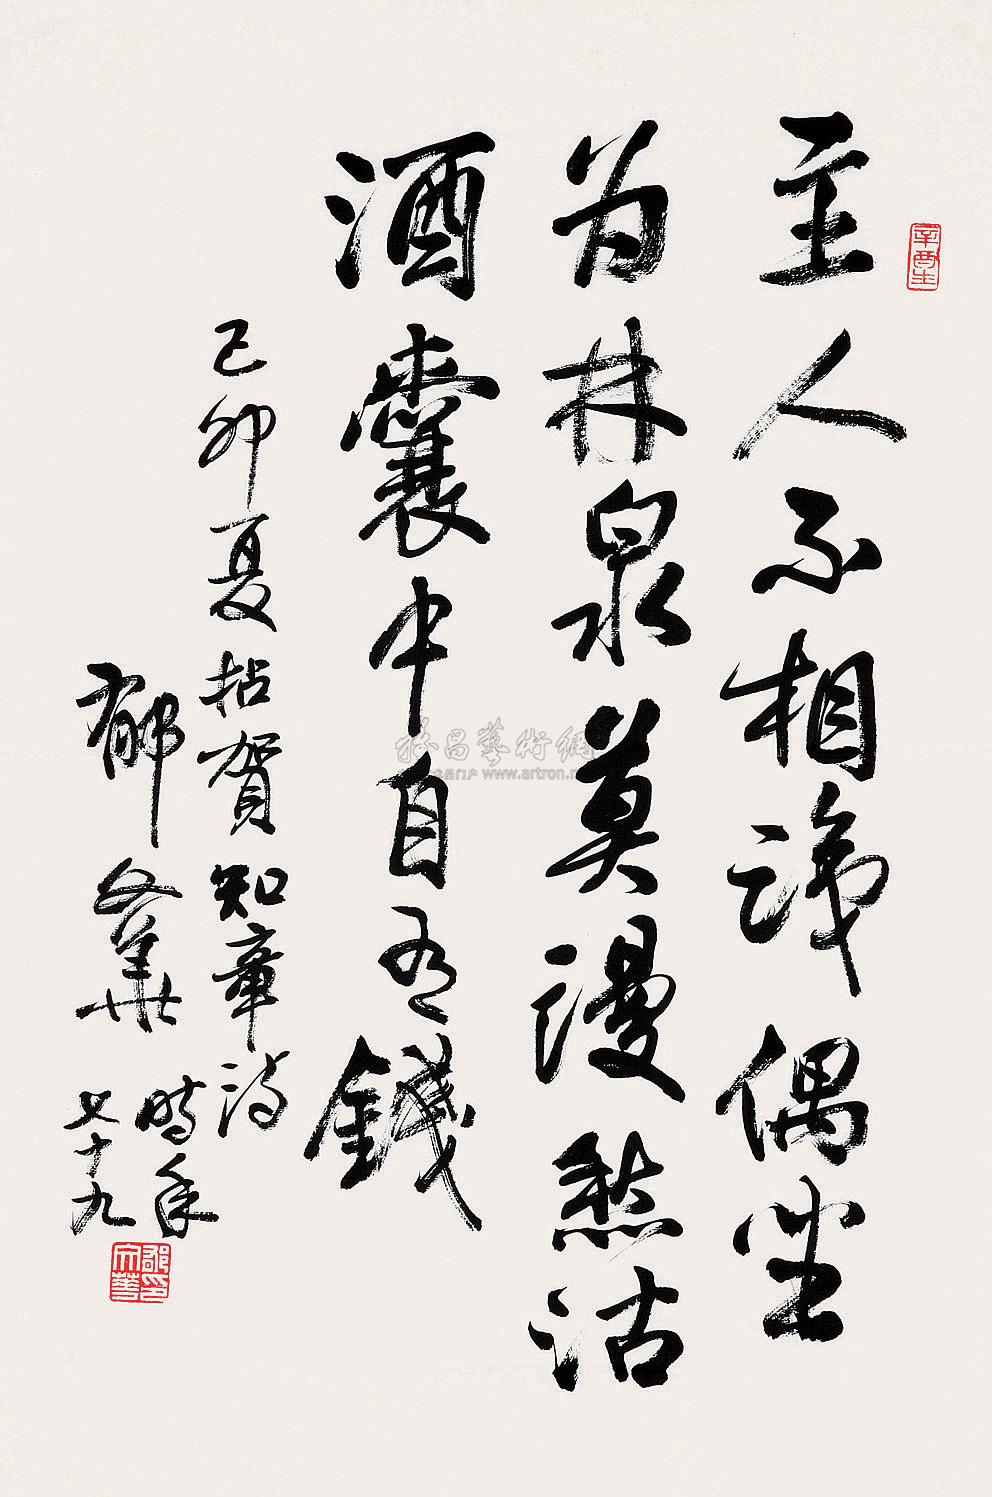 主人不相識偶坐
为林泉莫謾愁沽
酒囊中自有錢
己卯夏拈賀知章诗
郁文華時年
七十九
辛酉生
郁文華印
雅昌藝術網
www.artron.n